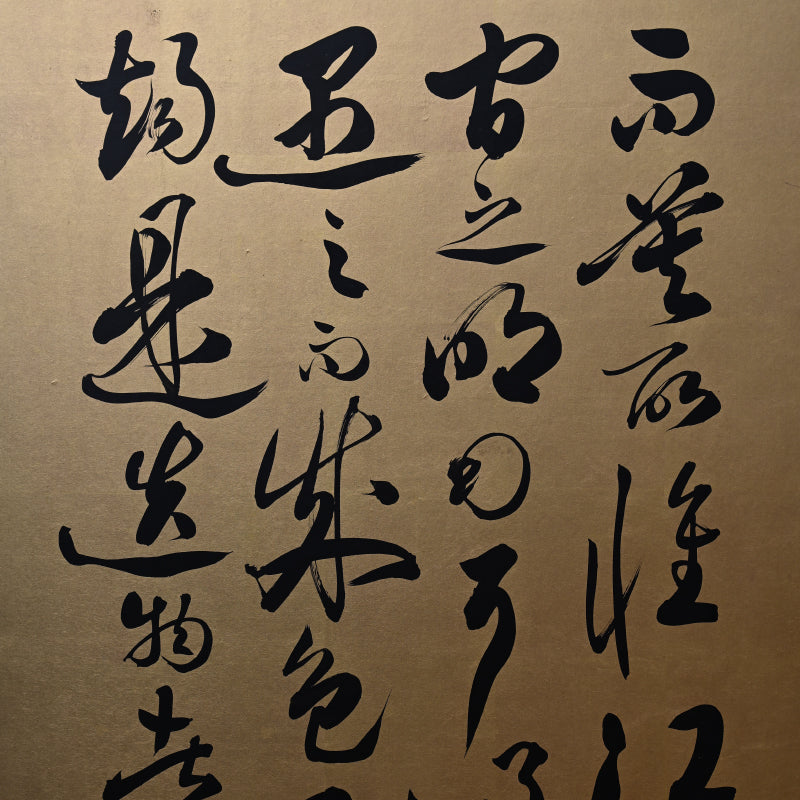 而莫取惟江
間之明月耳
遇之而成色
竭是造物者